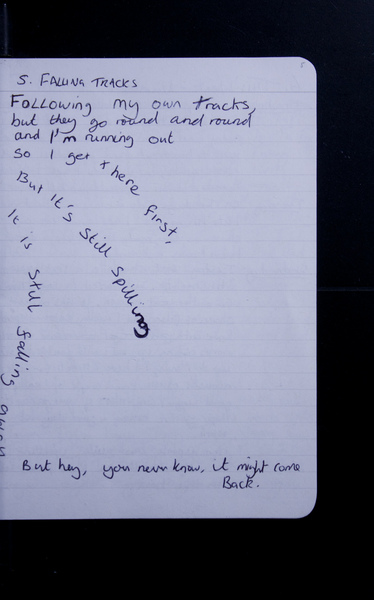 5. FALLING TRACKS
Following my own tracks,
but they go round and round
and I'm running out
So I get there first,
But it's still spilling
It is still falling away
But hey, you never know, it might come
Back.